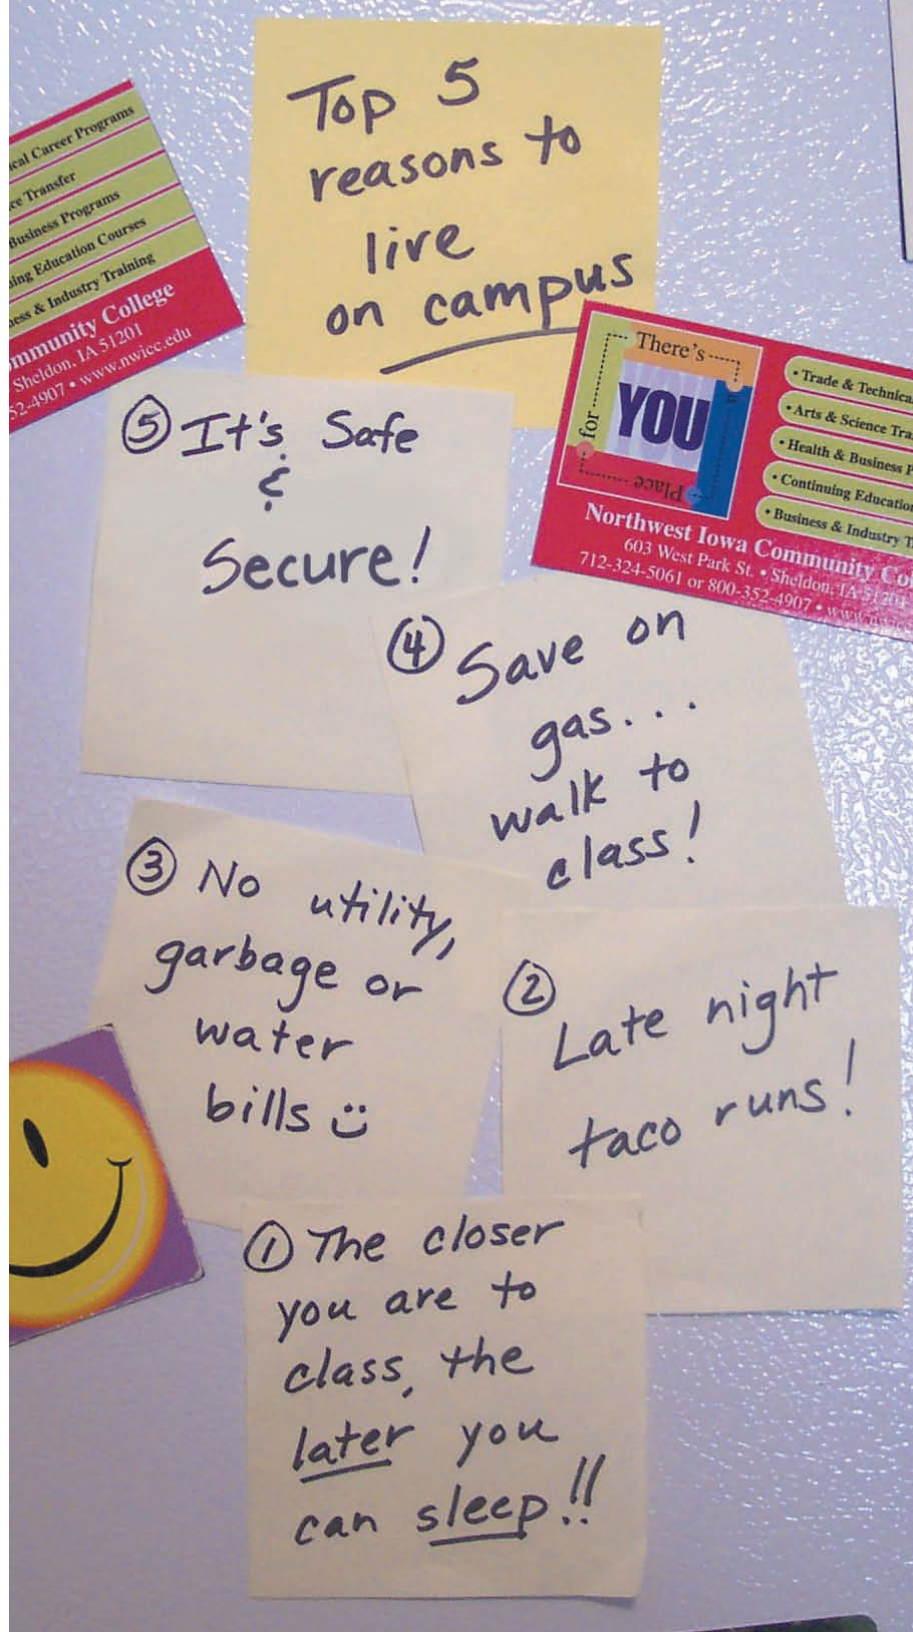 Top 5
reasons to
live
on campus
ical Career Programs
ce Transfer
Business Programs
ing Education Courses
ess & Industry Training
ommunity College
Sheldon, IA 51201
52-4907 • www.nwicc.edu
There's
a
Place
for
YOU
• Trade & Technica
• Arts & Science Tra
• Health & Business P
• Continuing Education
• Business & Industry T
Northwest Iowa Community Co
603 West Park St. • Sheldon, IA 51201
712-324-5061 or 800-352-4907 • www.nwicc
5 It's Safe
&
Secure!
4 Save on
gas...
walk to
class!
3 No utility,
garbage or
water
bills :)
2
Late night
taco runs!
1 The closer
you are to
class, the
later you
can sleep!!